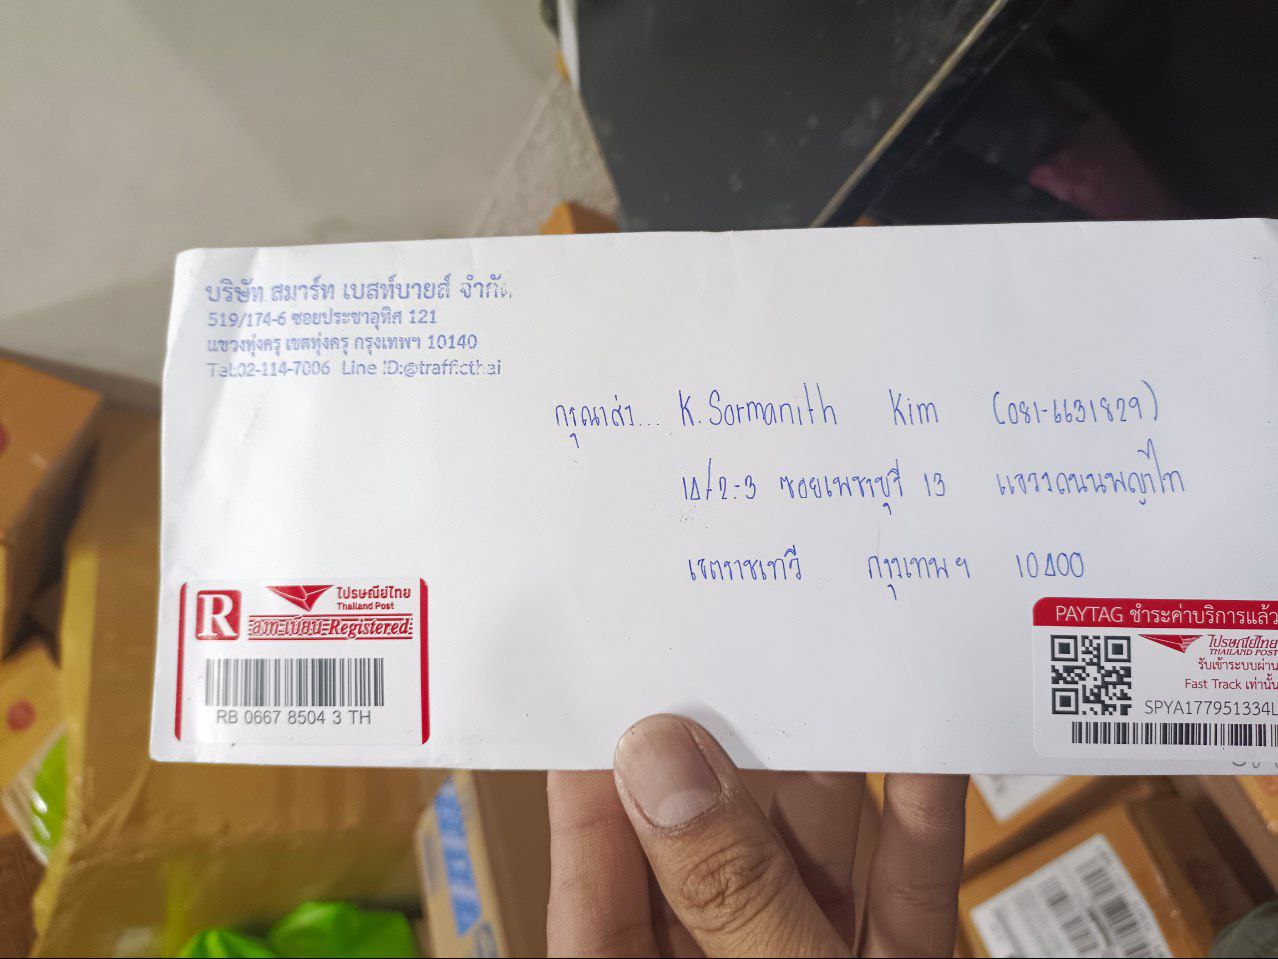 บริษัท สมาร์ท เบสท์บายส์ จำกัด
519/174-6 ซอยประชาอุทิศ 121
แขวงทุ่งครุ เขตทุ่งครุ กรุงเทพฯ 10140
Tel:02-114-7006 Line ID:@trafficthai
กรุณาส่ง... K. Sormanith Kim (081-6631829)
14/2-3 ซอยเพชรบุรี 13 แขวงถนนพญาไท
เขตราชเทวี กรุงเทพฯ 10400
R
ไปรษณีย์ไทย
Thailand Post
ลงทะเบียน-Registered
RB 0667 8504 3 TH
PAYTAG ชำระค่าบริการแล้ว
ไปรษณีย์ไทย
THAILAND POST
รับเข้าระบบผ่าน
Fast Track เท่านั้น
SPYA177951334L